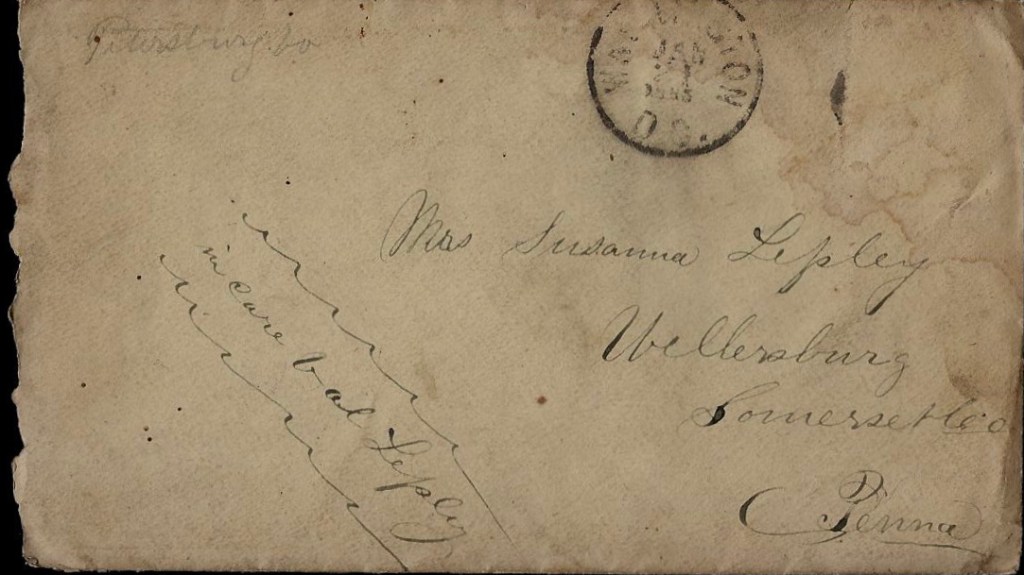 Petersburg
WASHINGTON
JAN
D.C.
Mrs Susanna Lepley
Wellersburg
Somerset Co
Penna
in care Val Lepley